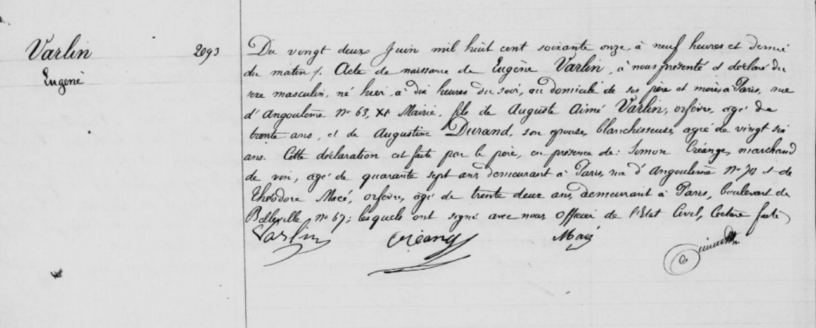 Varlin 2093
Eugène
Du vingt deux Juin mil huit cent soixante onze, à neuf heures et demie
du matin /. Acte de naissance de Eugène Varlin, à nous présenté et déclaré du
sexe masculin, né hier, à dix heures du soir, au domicile de ses père et mère à Paris, rue
d'Angoulême N° 63, XIe Mairie, fils de Auguste Aimé Varlin, orfèvre, agé de
trente ans, et de Augustine Durand, son épouse, blanchisseuse, agée de vingt six
ans. Cette déclaration est faite par le père, en présence de: Simon Créange, marchand
de vin, agé de quarante sept ans demeurant à Paris rue d'Angoulême N° 70 & de
Théodore Macé, orfèvre, agé de trente deux ans, demeurant à Paris, boulevart de
Belleville, N° 67; lesquels ont signé avec nous Officier de l'Etat Civil, lecture faite
Varlin Créange Macé